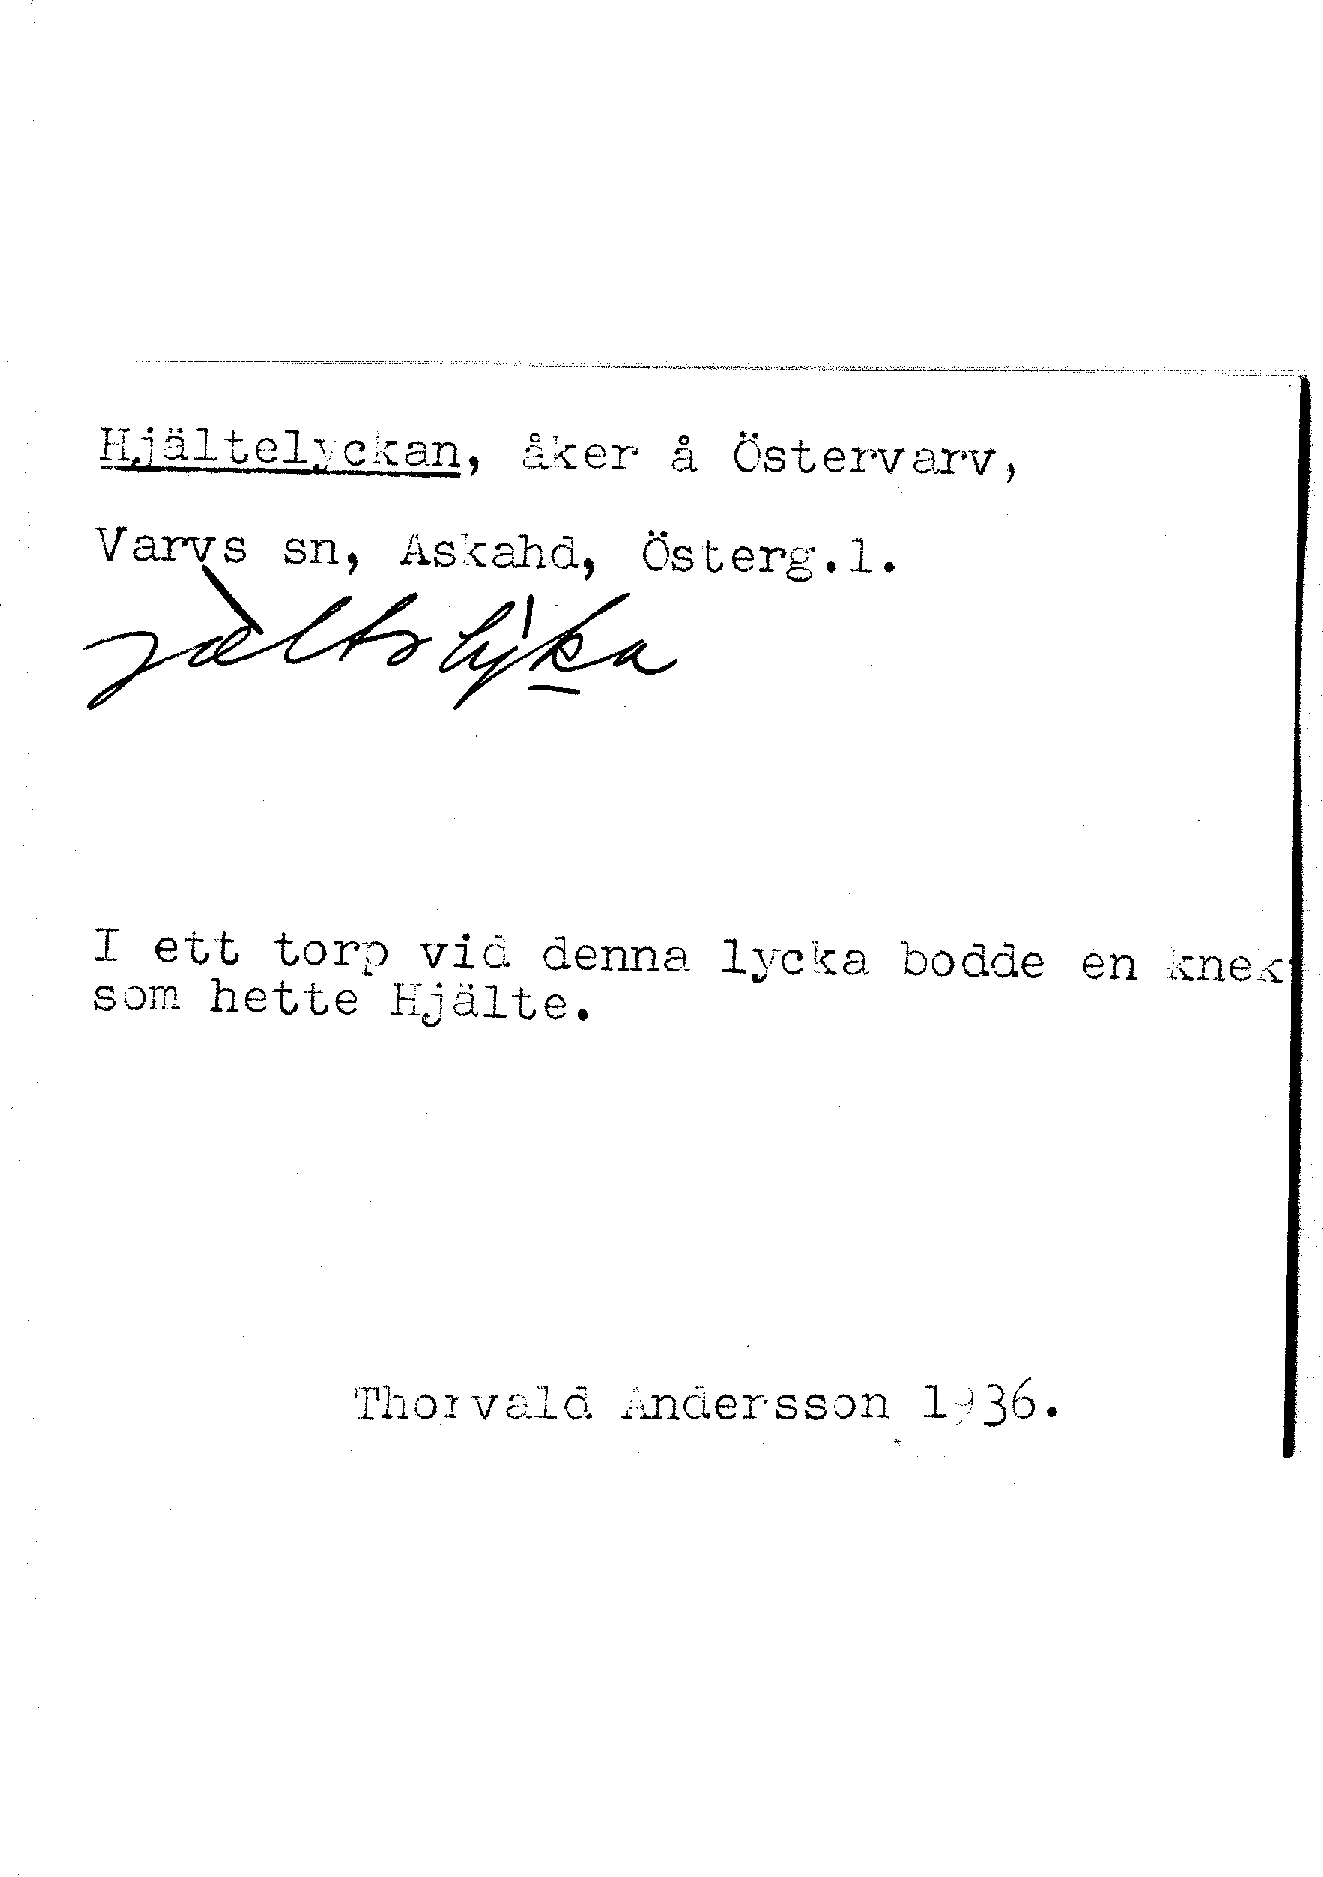 Hjältelyckan, åker å Östervarv,
Varvs sn, Askahd, Österg.l.
jæ̀ltəlýka
I ett torp vid denna lycka bodde en knekt
som hette Hjälte.
Thorvald Andersson 1936.